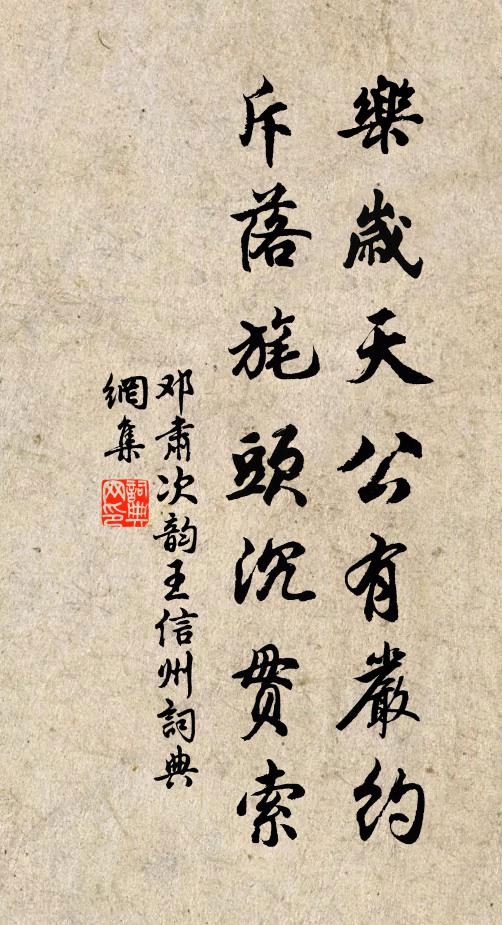 樂歲天公有嚴約
斥落旄頭沉貫索
邓肅次韵王信州詞典
網集
詞典网印